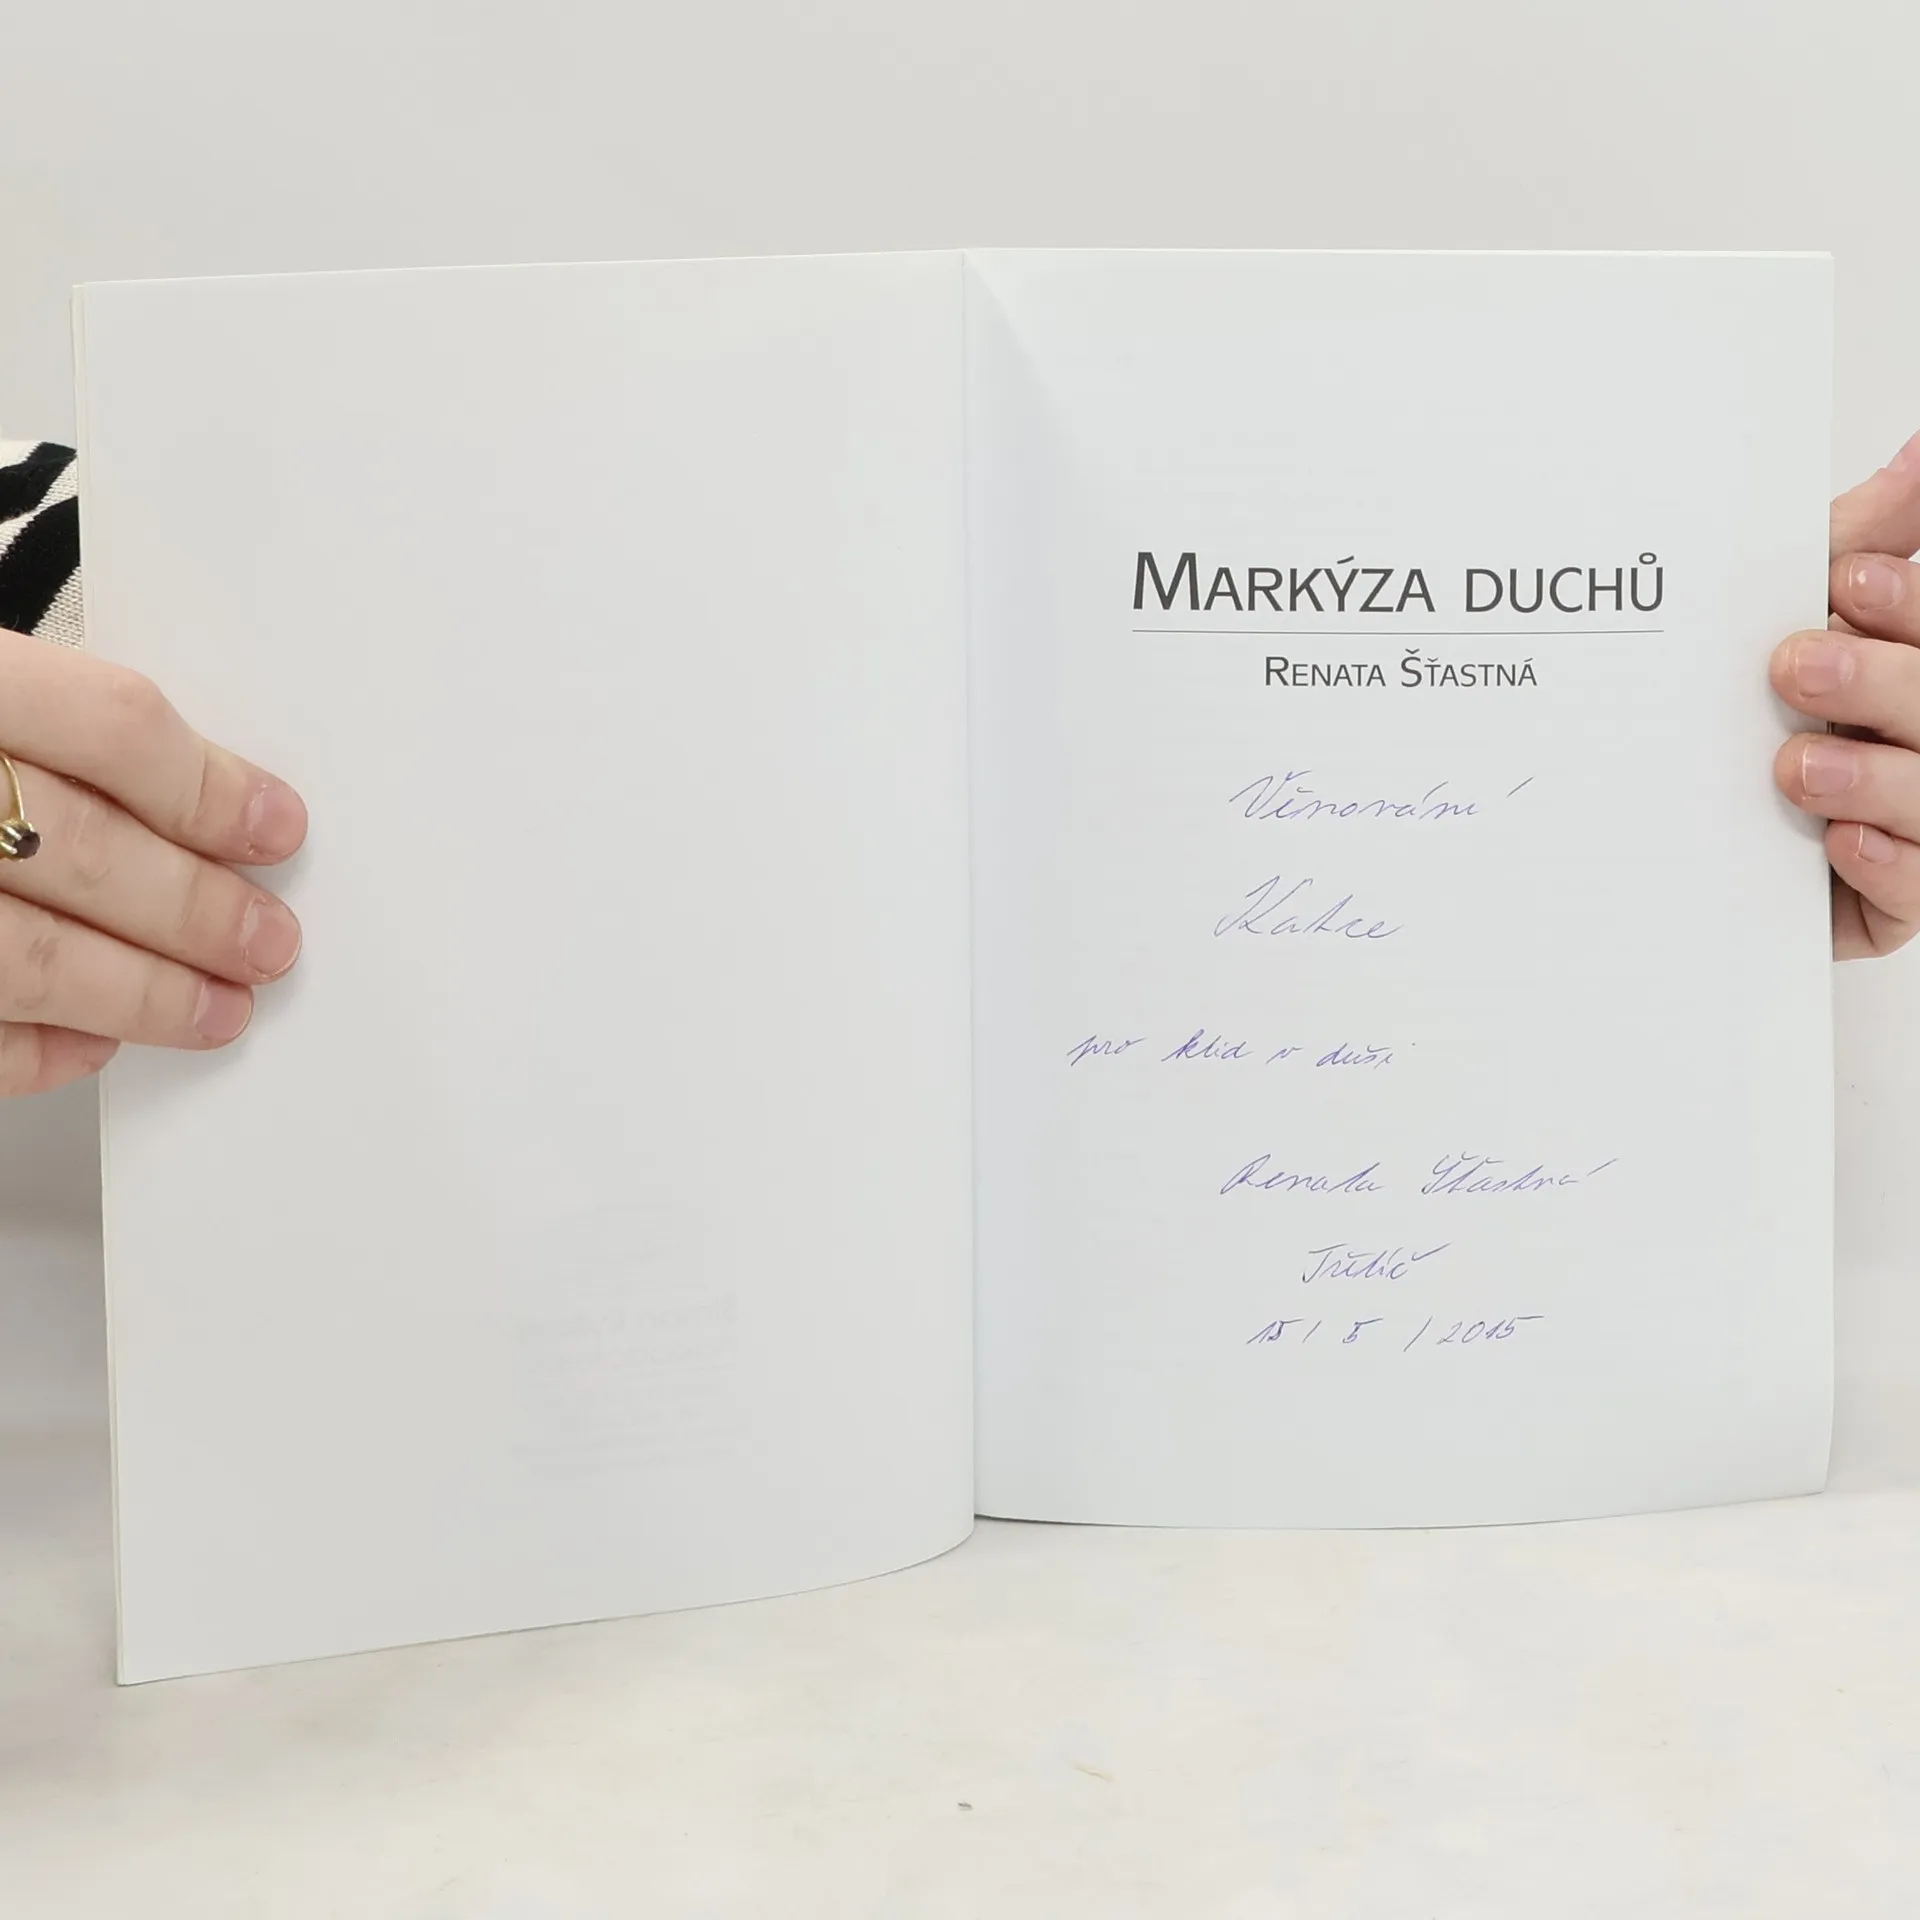 MARKÝZA DUCHŮ
RENATA ŠŤASTNÁ
Věnování
Katce
pro klid v duši
Renata Šťastná
Třebíč
15 / 5 / 2015